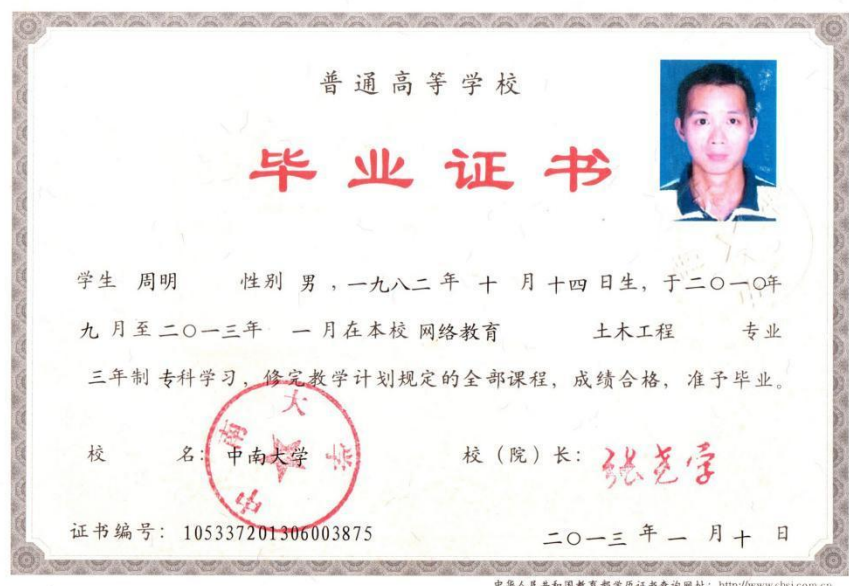 普通高等学校
毕业证书
学生 周明 性别 男 ，一九八二 年 十 月 十四 日生，于二〇一〇年
九 月至 二〇一三年 一 月在本校 网络教育 土木工程 专业
三年制 专科学习，修完教学计划规定的全部课程，成绩合格，准予毕业。
校 名：中南大学 校（院）长：张尧学
中南大学
证书编号：105337201306003875 二〇一三 年 一 月 十 日
中华人民共和国教育部学历证书查询网址：http://www.chsi.com.cn